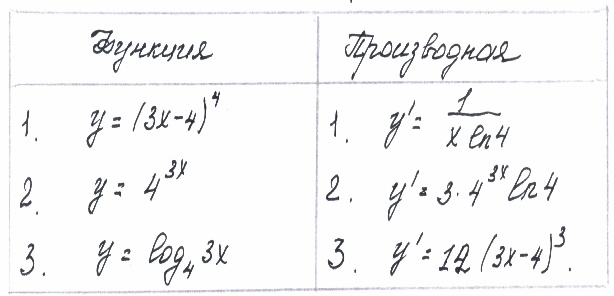 Функция Производная
1. y = (3x-4)⁴ 1. y' = 1/(x ln 4)
2. y = 4³ˣ 2. y' = 3·4³ˣ ln 4
3. y = log₄ 3x 3. y' = 12 (3x-4)³.